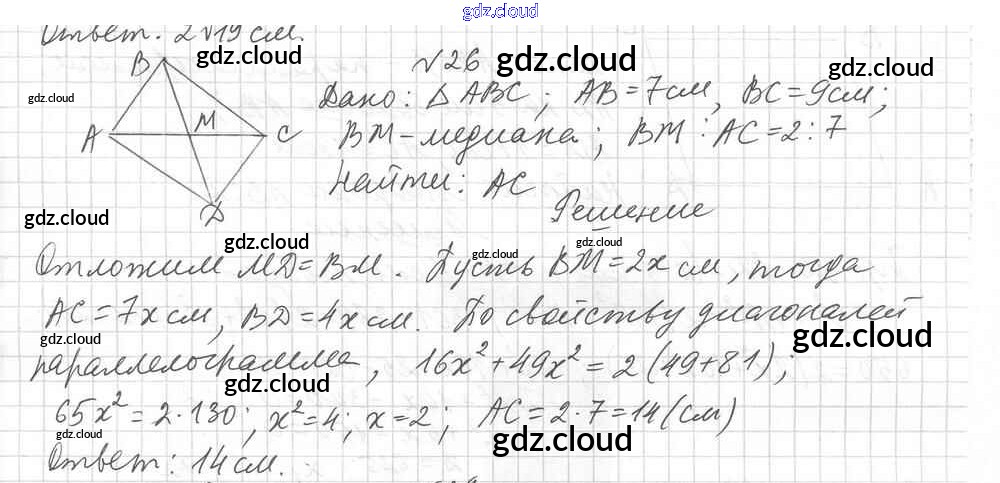 gdz.cloud
Ответ. 2√19 см.
gdz.cloud
№26
gdz.cloud
gdz.cloud
gdz.cloud
B
A
M
C
D
Дано: ΔABC; AB=7см, BC=9см;
BM-медиана; BM:AC=2:7
Найти: AC
gdz.cloud
Решение
gdz.cloud
gdz.cloud
gdz.cloud
Отложим MD=BM. Пусть BM=2x см, тогда
AC=7x см, BD=4x см. По свойству диагоналей
gdz.cloud
gdz.cloud
gdz.cloud
параллелограмма, 16x²+49x²=2(49+81);
gdz.cloud
65x²=2·130; x²=4; x=2; AC=2·7=14(см)
gdz.cloud
gdz.cloud
Ответ: 14см.